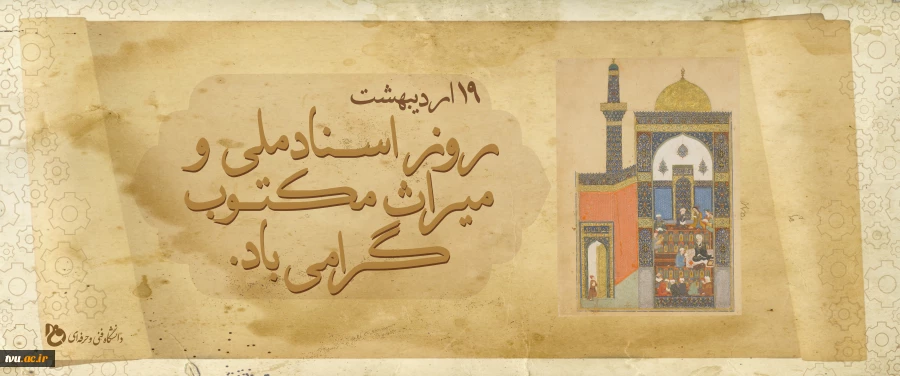 ۱۹ اردیبهشت
روز اسناد ملی و
میراث مکتوب
گرامی باد.
دانشگاه فنی و حرفه‌ای
tvu.ac.ir